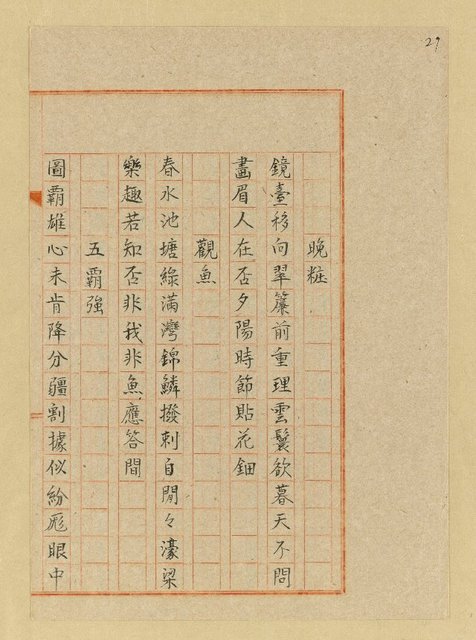 29
晚粧
鏡臺移向翠簾前重理雲鬟欲暮天不問
畵眉人在否夕陽時節貼花鈿
觀魚
春水池塘綠滿灣錦鱗撥刺自閒々濠梁
樂趣若知否非我非魚應答間
五霸強
圖霸雄心未肯降分疆割據似紛厖眼中